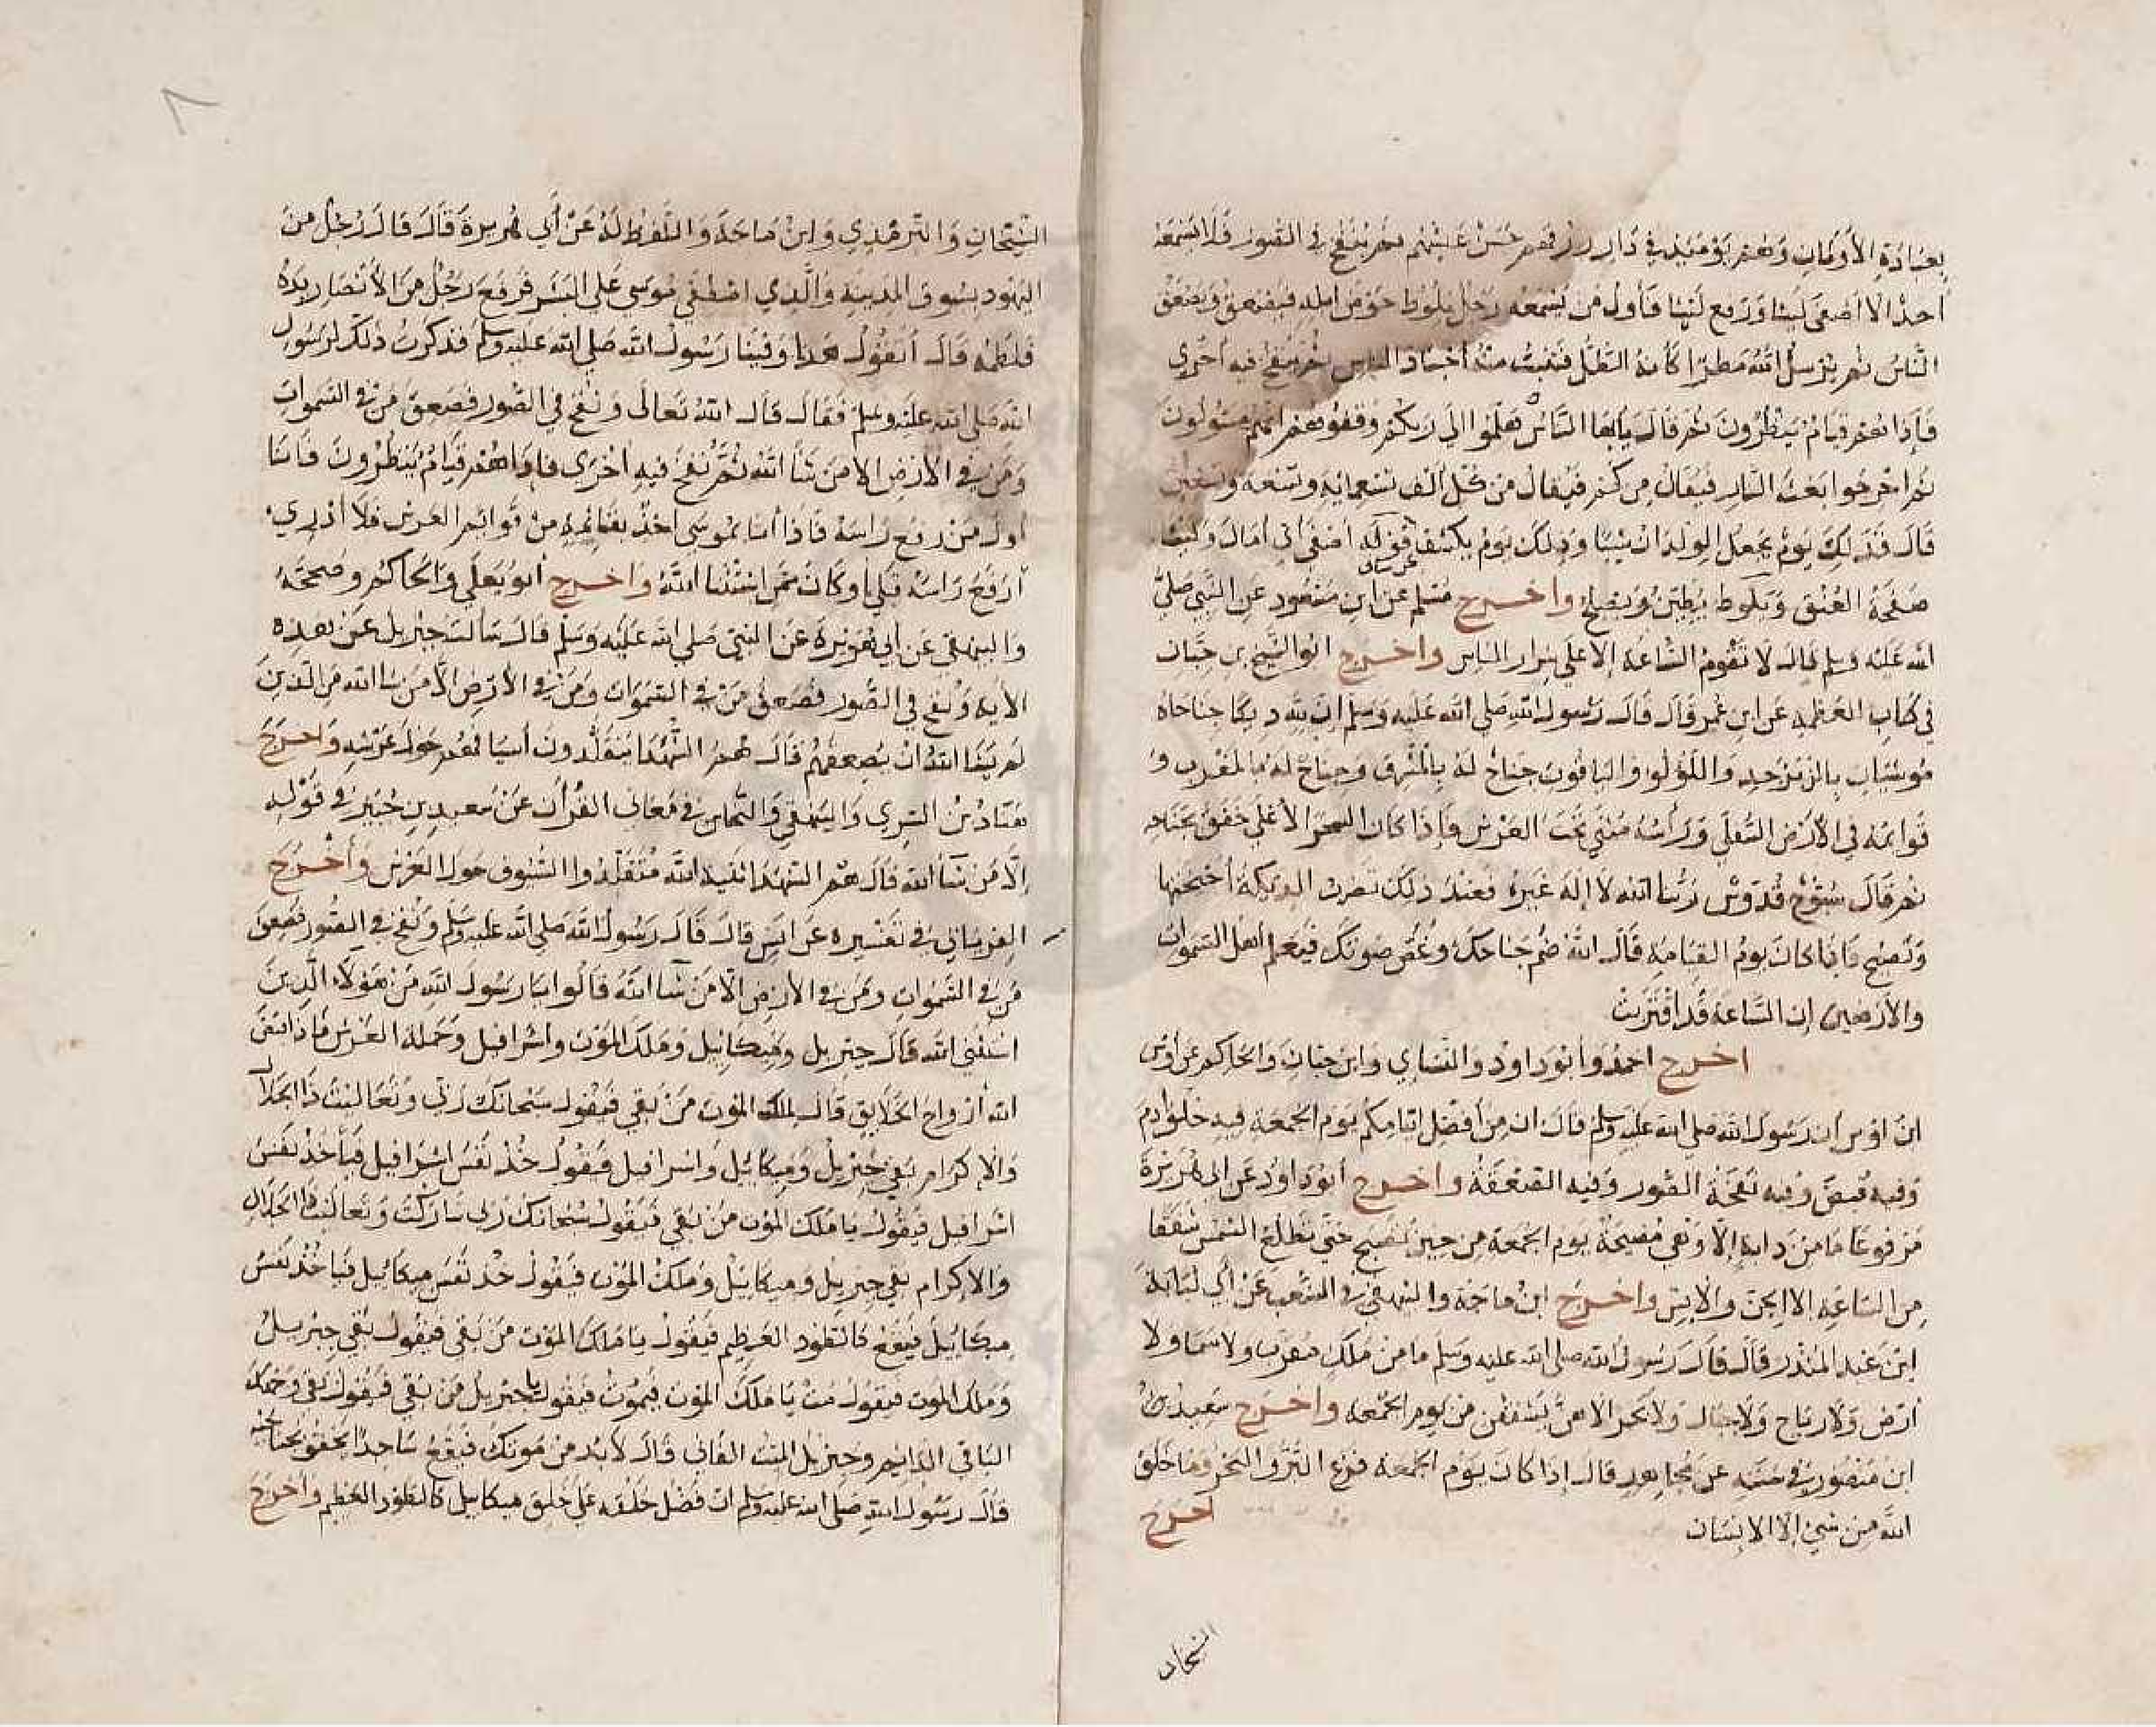 بعبادة الأوثان وهم يومئذ في دار رزقهم حسن عيشهم ثم ينفخ في الصور فلا يسمعه
أحد إلا أصغى ليتا ورفع ليتا فأول من يسمعه رجل يلوط حوض ابله فيصعق ويصعق
الناس ثم يرسل الله مطرا كأنه الطل فتنبت منه أجساد الناس ثم ينفخ فيه أخرى
فإذا هم قيام ينظرون ثم قال يأيها الناس هلموا إلى ربكم وقفوهم إنهم مسئولون
ثم اخرجوا بعث النار فيقال من كم فيقال من كل ألف تسعمائة وتسعة وتسعين
قال فذلك يوم يجعل الولدان شيبا وذلك يوم يكشف عن ساق قوله اصغى أي أمال وليتا
صفحة العنق ويلوط يطين ويصلح وأخرج مسلم عن ابن مسعود عن النبي صلى
الله عليه وسلم قال لا تقوم الساعة إلا على شرار الناس وأخرج أبو الشيخ بن حبان
في كتاب العظمة عن ابن عمر قال قال رسول الله صلى الله عليه وسلم ان لله ديكا جناحاه
موشيان بالزبرجد واللؤلؤ والياقوت جناح له بالمشرق وجناح له بالمغرب و
قوائمه في الأرض السفلى ورأسه مثني تحت العرش فإذا كان السحر الأعلى خفق بجناحه
ثم قال سبوح قدوس ربنا الله لا إله غيره فعند ذلك تضرب الديكة أجنحتها
وتصيح فإذا كان يوم القيامة قال الله ضم جناحك وغض صوتك فيعلم أهل السموات
والأرضين إن الساعة قد اقتربت
اخرج احمد وأبو داود والنساي وابن حبان والحاكم عن أوس
ابن اوس ان رسول الله صلى الله عليه وسلم قال ان من أفضل ايامكم يوم الجمعة فيه خلق ادم
وفيه قبض وفيه نفخة الصور وفيه الصعقة وأخرج أبو داود عن ابي هريرة
مرفوعا ما من دابة إلا وهي مصيخة يوم الجمعة من حين تصبح حتى تطلع الشمس شفقا
من الساعة الا الجن والانس وأخرج ابن ماجة والبيهقي في الشعب عن أبي لبابة
ابن عبد المنذر قال قال رسول الله صلى الله عليه وسلم ما من ملك مقرب ولا سما ولا
أرض ولا رياح ولا جبال ولا بحر الا هن يشفقن من يوم الجمعة وأخرج سعيد
ابن منصور في سننه عن مجاهد قال إذا كان يوم الجمعة فزع البر والبحر وما خلق
الله من شئ إلا الانسان اخرج
الشيخان
الشيخان والترمذي وابن ماجة واللفظ له عن أبي هريرة قال قال رجل من
اليهود بسوق المدينة والذي اصطفى موسى على البشر فرفع رجل من الأنصار يده
فلطمه قال أتقول هذا وفينا رسول الله صلى الله عليه وسلم فذكرت ذلك لرسول
الله صلى الله عليه وسلم فقال قال الله تعالى ونفخ في الصور فصعق من في السموات
ومن في الأرض الا من شا الله ثم نفخ فيه أخرى فإذا هم قيام ينظرون فانا
أول من رفع راسه فاذا أنا بموسى آخذ بقائمة من قوائم العرش فلا أدري
أرفع راسه قبلي أو كان ممن استثنا الله وأخرج أبو يعلى والحاكم وصححه
والبيهقي عن أبي هريرة عن النبي صلى الله عليه وسلم قال سألت جبريل عن هذه
الأية ونفخ في الصور فصعق من في السموات ومن في الأرض إلا من شا الله من الذين
لم يشا الله ان يصعقهم قال هم الشهدا متقلدون أسيافهم حول عرشه واخرج
هناد بن السري والبيهقي والنحاس في معاني القرآن عن سعيد بن جبير في قوله
إلا من شآ الله قال هم الشهدا ثنية الله متقلدوا السيوف حول العرش وأخرج
الفريابي في تفسيره عن انس قال قال رسول الله صلى الله عليه وسلم ونفخ في الصور فصعق
من في السموات ومن في الأرض الا من شآ الله قالوا يا رسول الله من هؤلاء الذين
استثنى الله قال جبريل وميكائيل وملك الموت واسرافيل وحملة العرش فاذا قبض
الله أرواح الخلايق قال لملك الموت من بقي فيقول سبحانك ربي وتعاليت ذا الجلال
والإكرام بقي جبريل وميكائيل واسرافيل فيقول خذ نفس اسرافيل فيأخذ نفس
اسرافيل فيقول يا ملك الموت من بقي فيقول سبحانك ربي تباركت وتعاليت ذا الجلال
والاكرام بقي جبريل وميكائيل وملك الموت فيقول خذ نفس ميكائيل فياخذ نفس
ميكائيل فيقع كالطود العظيم فيقول يا ملك الموت من بقي فيقول بقي جبريل
وملك الموت فيقول مت يا ملك الموت فيموت فيقول يا جبريل من بقي فيقول بقي وجهك
الباقي الدايم وجبريل الميت الفاني قال لا بد من موتك فيقع ساجدا يخفق بجناحيه
قال رسول الله صلى الله عليه وسلم ان فضل خلقه على خلق ميكائيل كالطود العظيم وأخرج
٨